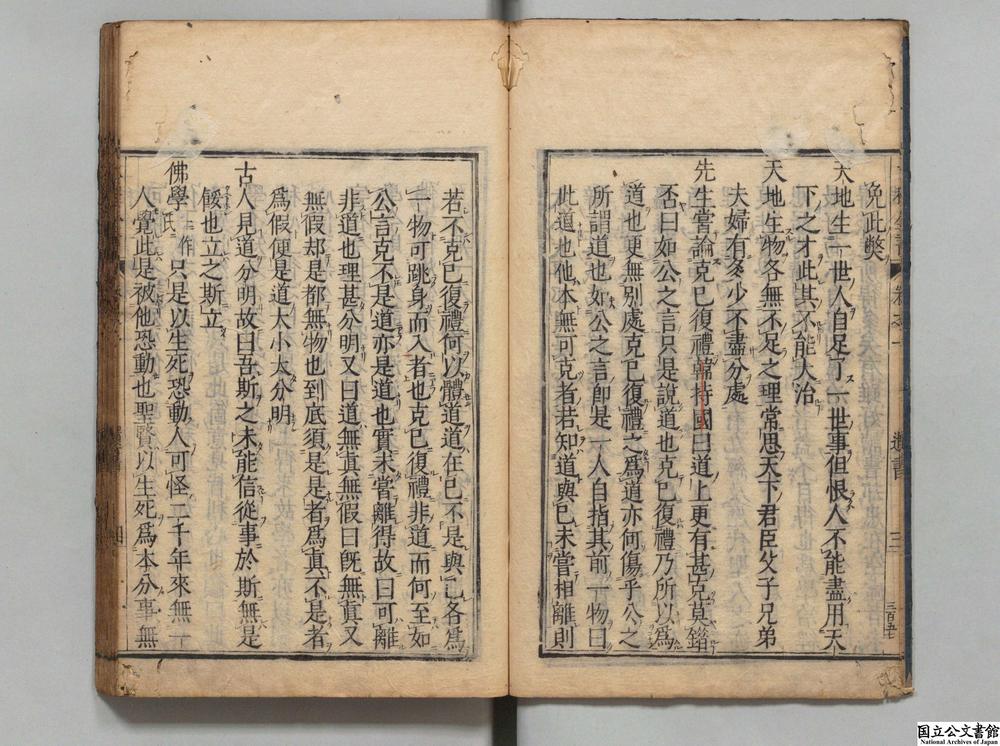 免此弊
天地生一世人自足了一世事但恨人不能盡用天
下之才此其不能大治
天地生物各無不足之理常思天下君臣父子兄弟
夫婦有多少不盡分處
先生嘗論克己復禮韓持國曰道上更有甚克莫錯
否曰如公之言只是說道也克己復禮乃所以爲
道也更無別處克己復禮之爲道亦何傷乎公之
所謂道也如公之言即是一人自指其前一物曰
此道也他本無可克者若知道與己未嘗相離則
若不克己復禮何以體道道在己不是與己各爲
一物可跳身而入者也克己復禮非道而何至如
公言克不是道亦是道也實未嘗離得故曰可離
非道也理甚分明又曰道無真無假曰旣無真又
無假却是都無物也到底須是是者爲真不是者
爲假便是道大小大分明
古人見道分明故曰吾斯之未能信從事於斯無是
餒也立之斯立
佛學 一作氏 只是以生死恐動人可怪二千年來無一
人覺此是被他恐動也聖賢以生死爲本分事無
遺書
三
三百五七
四
国立公文書館
National Archives of Japan